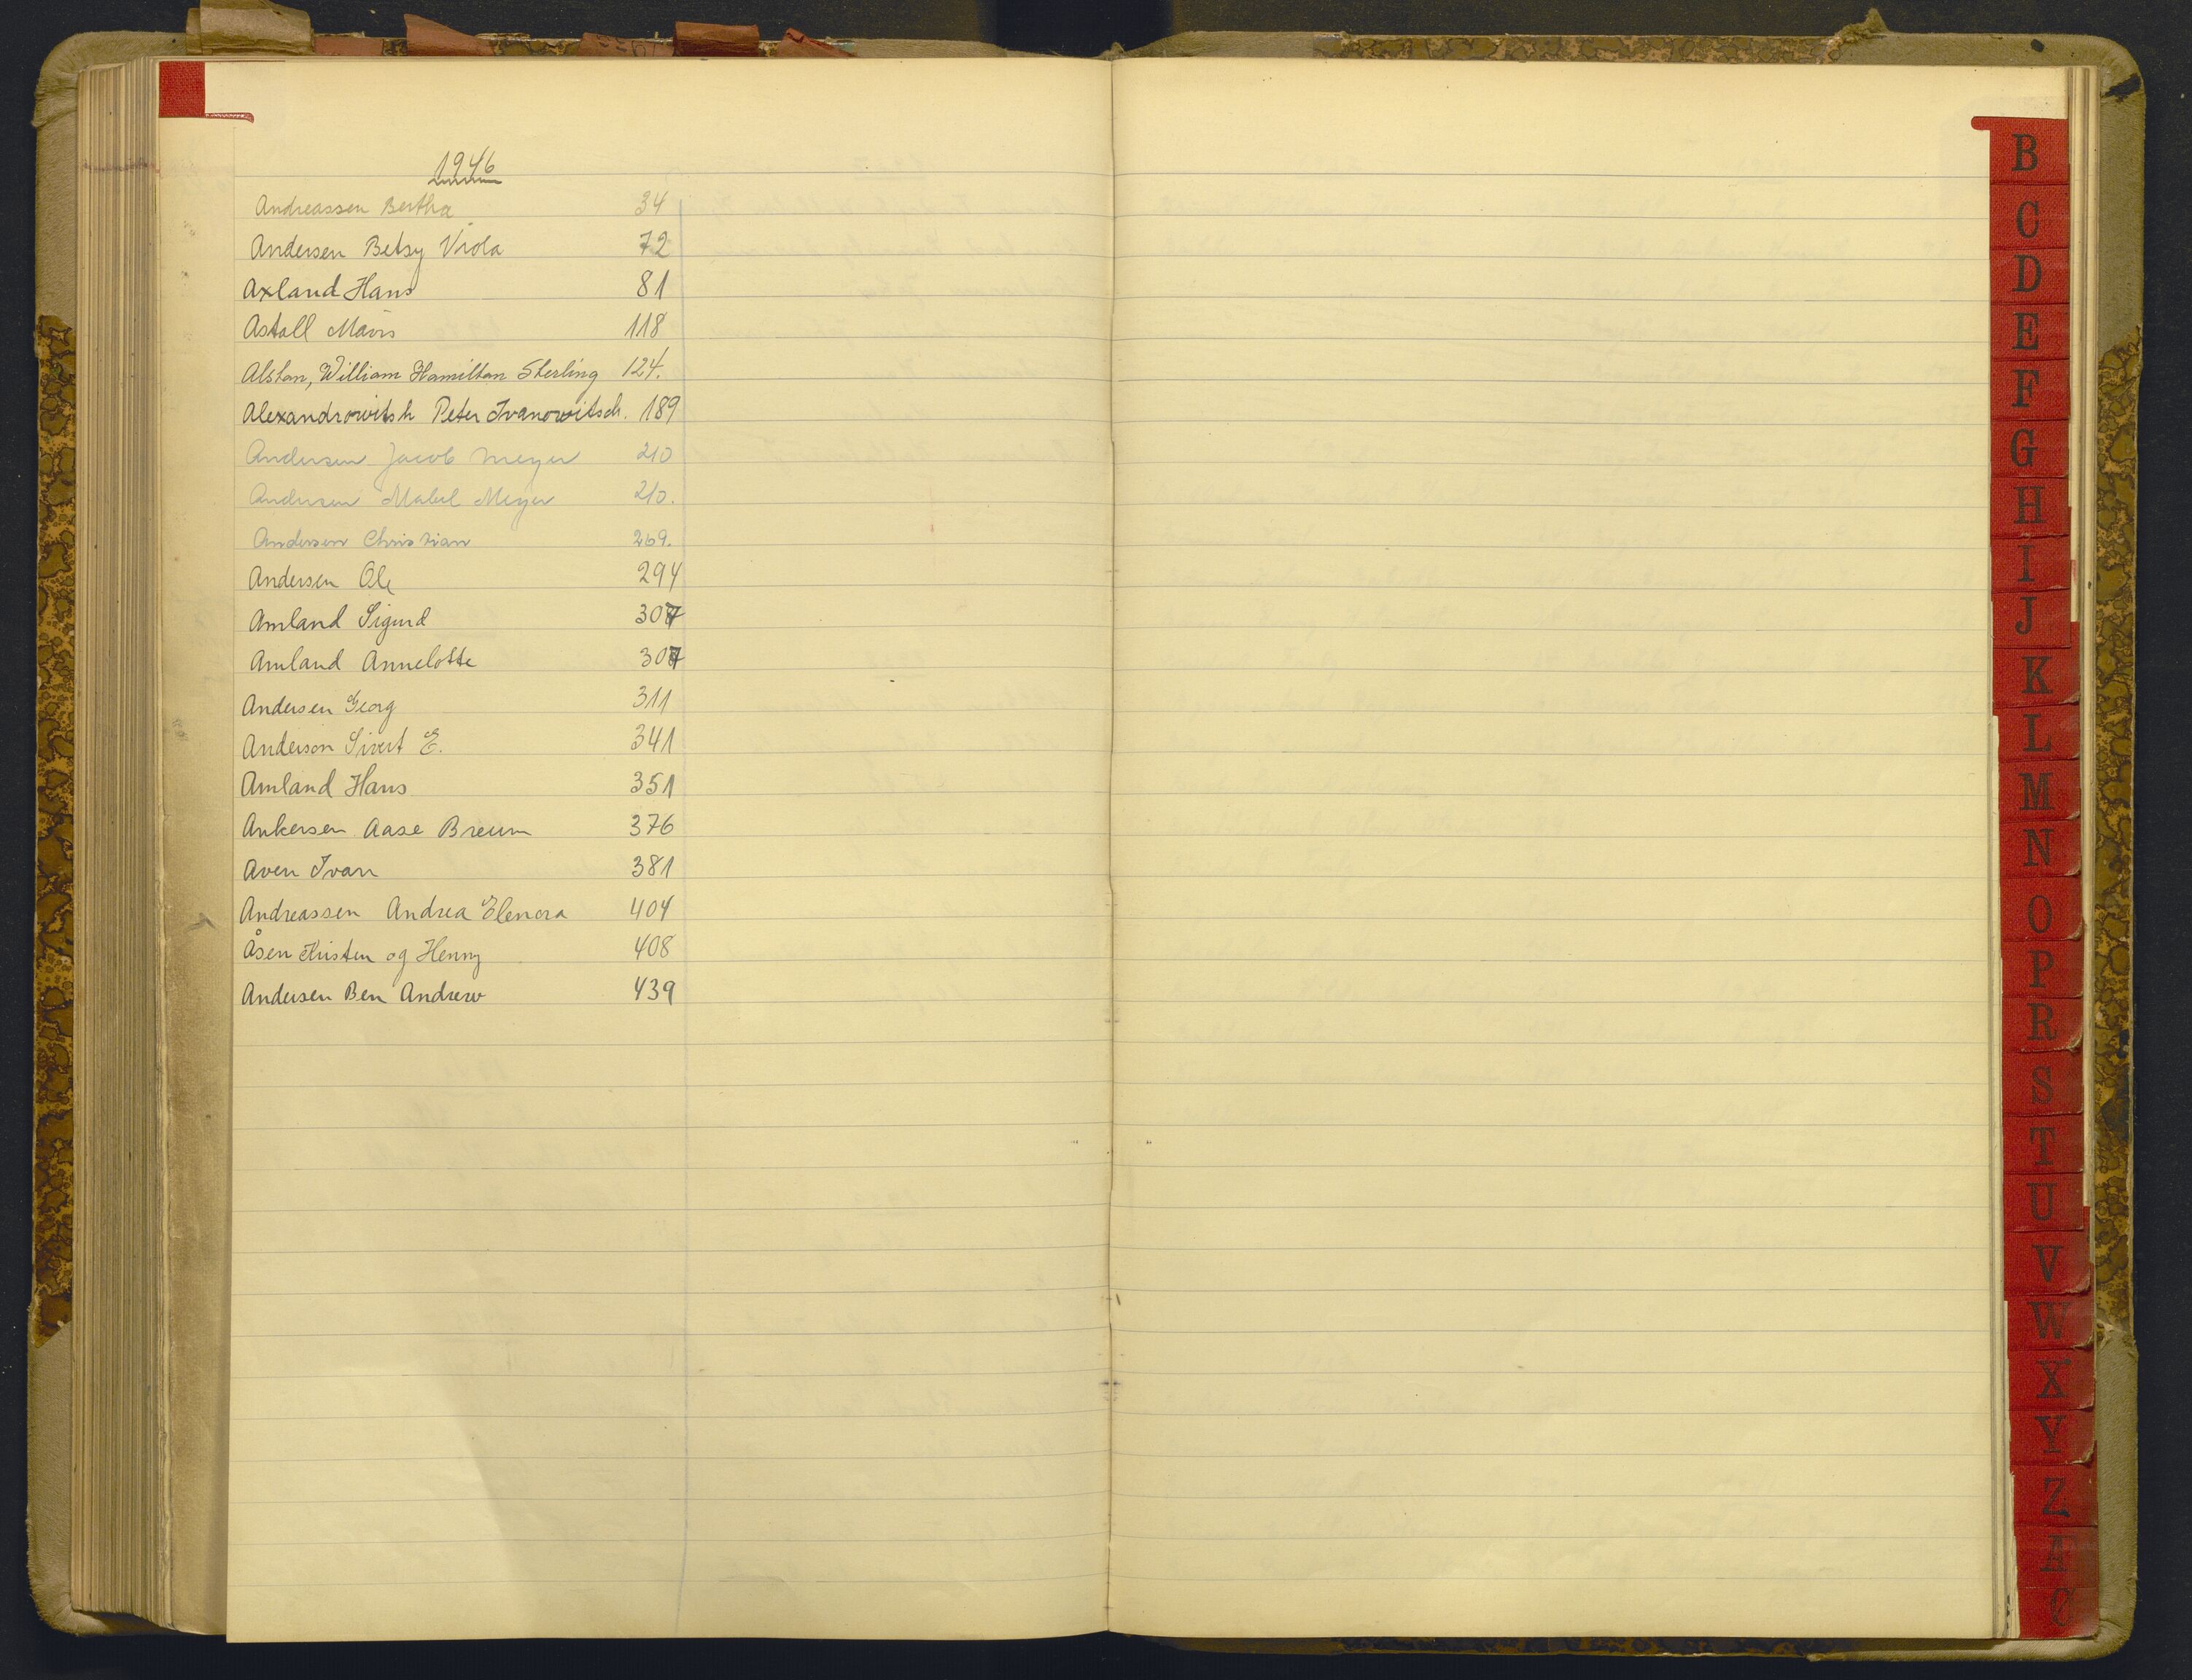 1946
Andreassen Bertha 34
Andersen Betsy Viola 72
Axland Hans 81
Astall Mavis 118
Alstan, William Hamiltan Sterling 124.
Alexandrowitsh Peter Ivanowitsch. 189
Andersen Jacob Meyer 210
Andersen Mabel Meyer 210.
Andersen Christian 269.
Andersen Ole 294
Amland Sigurd 307
Amland Annelotte 307
Andersen Georg 311
Anderson Sivert E. 341
Amland Hans 351
Ankersen Aase Breum 376
Aven Ivan 381
Andreassen Andrea Elenora 404
Åsen Kristen og Henny 408
Andersen Ben Andrew 439
B
C
D
E
F
G
H
I
J
K
L
M
N
O
P
R
S
T
U
V
W
X
Y
Z